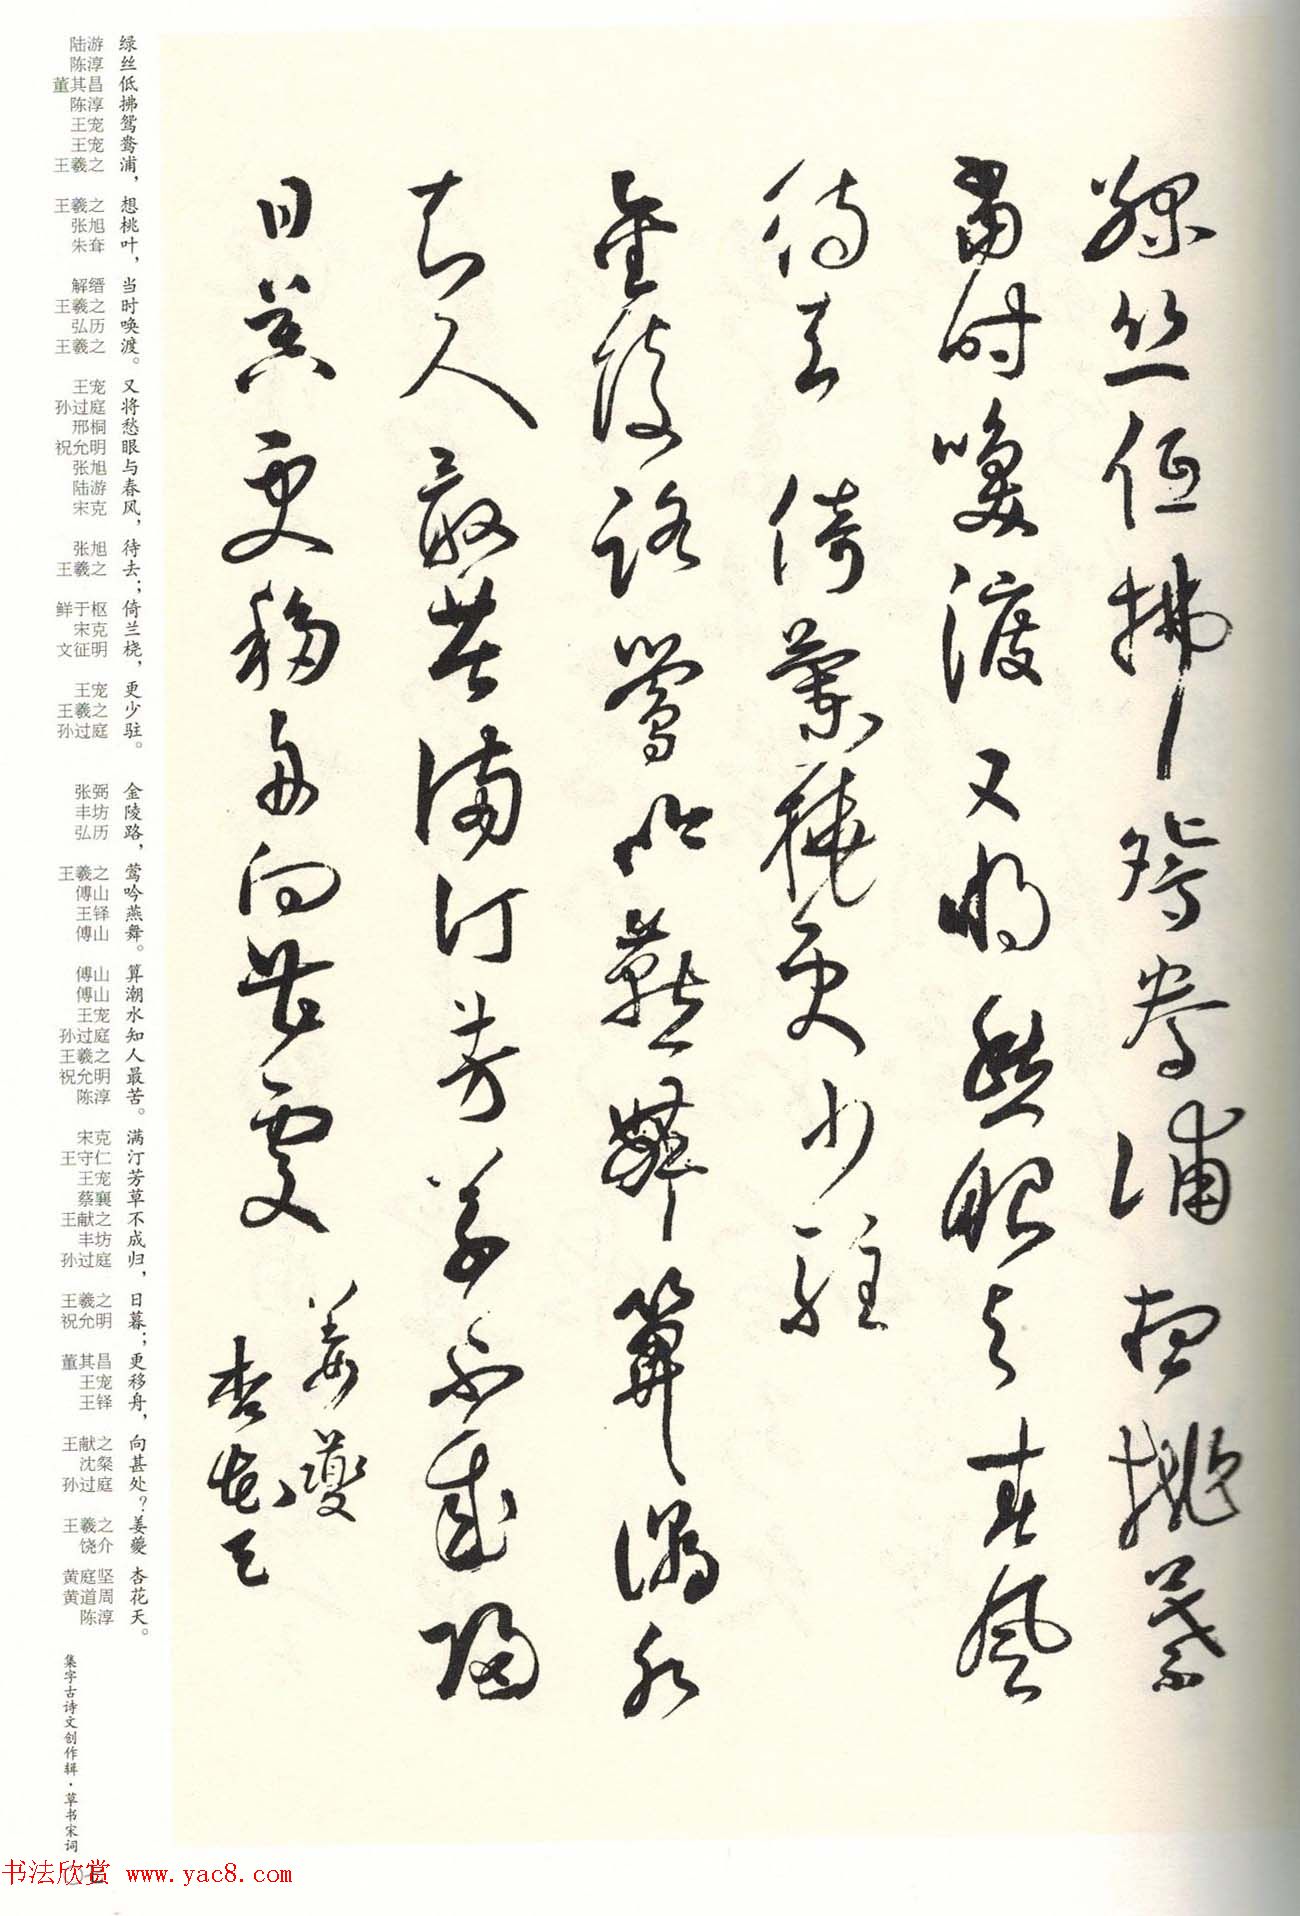 绿丝低拂鸳鸯浦想桃叶
当时唤渡又将愁眼与春风
待去倚兰桡更少驻
金陵路莺吟燕舞算潮水
知人最苦满汀芳草不成归
日暮更移舟向甚处
姜夔
杏花天
绿丝低拂鸳鸯浦，想桃叶，当时唤渡。又将愁眼与春风，待去；倚兰桡，更少驻。 金陵路，莺吟燕舞。算潮水知人最苦。满汀芳草不成归，日暮；更移舟，向甚处？姜夔 杏花天。
陆游 陈淳 董其昌 陈淳 王宠 王宠 王羲之 王羲之 张旭 朱耷 解缙 王羲之 弘历 王羲之 王宠 孙过庭 邢桐 祝允明 张旭 陆游 宋克 张旭 王羲之 鲜于枢 宋克 文征明 王宠 王羲之 孙过庭 张弼 丰坊 弘历 王羲之 傅山 王铎 傅山 傅山 傅山 王宠 孙过庭 王羲之 祝允明 陈淳 宋克 王守仁 王宠 蔡襄 王献之 丰坊 孙过庭 王羲之 祝允明 董其昌 王宠 王铎 王献之 沈粲 孙过庭 王羲之 饶介 黄庭坚 黄道周 陈淳
集字古诗文创作辑·草书宋词
书法欣赏 www.yac8.com